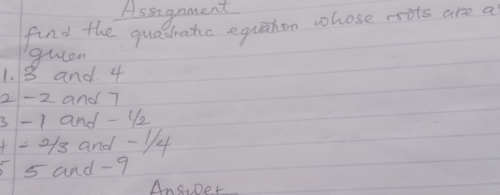 Assignment
find the quadratic equation whose roots are
given
1. 3 and 4
2 -2 and 7
3 -1 and -1/2
4 - 2/3 and -1/4
5 5 and -9
Answer